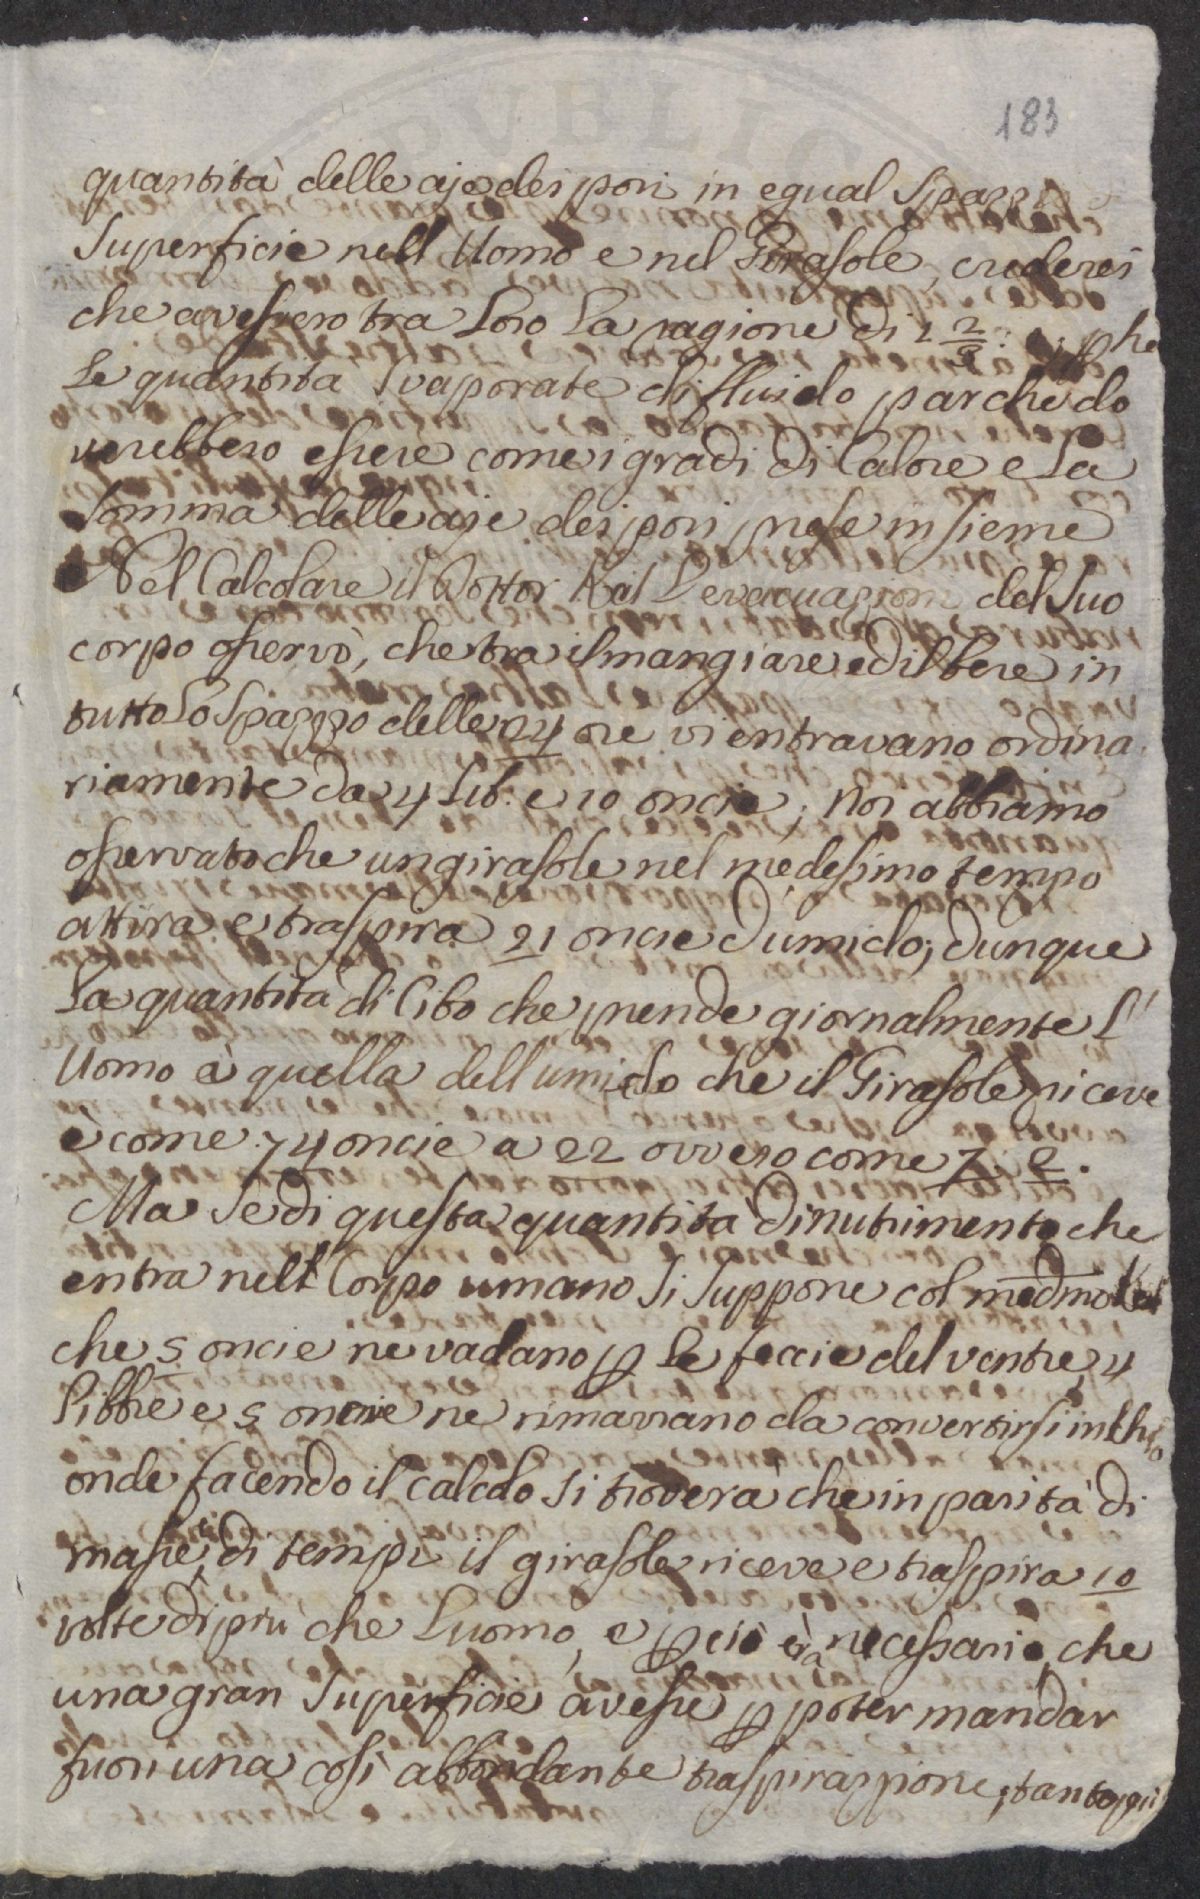 183
quantità delle aje dei pori in egual Spazzi
Superficie nell Uomo e nel Girasole, crederei
che avessero tra Loro La ragione di 1 2
Le quantita Svaporate di fluido par che do
verebbero essere come i gradi di Calore e La
Somma delle aje dei pori prese insieme
Nel Calcolare il Dottor Kail L'evacuazioni del Suo
corpo osservò, che tra il mangiare ed il bere in
tutto Lo Spazzo delle 24 ore vi entravano ordina
riamente da 4 Lib. e 10 oncie; Noi abbiamo
osservato che un girasole nel medesimo tempo
attira e traspira 21 oncie d'umido; dunque
La quantità di Cibo che prende giornalmente L'
Uomo à quella dell umido che il Girasole riceve
è come 74 oncie a 22 ovvero come 7. 2.
Ma Se di questa quantita di nutrimento che
entra nell Corpo umano Si Suppone col medmo
che 5 oncie ne vadano p Le feccie del ventre, 4
Libbre e 5 oncie ne rimarrano da convertirsi in
onde facendo il calcolo Si troverà che in parità di
masse, e di tempi il girasole riceve e traspira 10
volte di più che L'uomo, e p ciò era necessario, che
una gran Superficie avesse p poter mandar
fuori una così abbondante traspirazione; tanto più